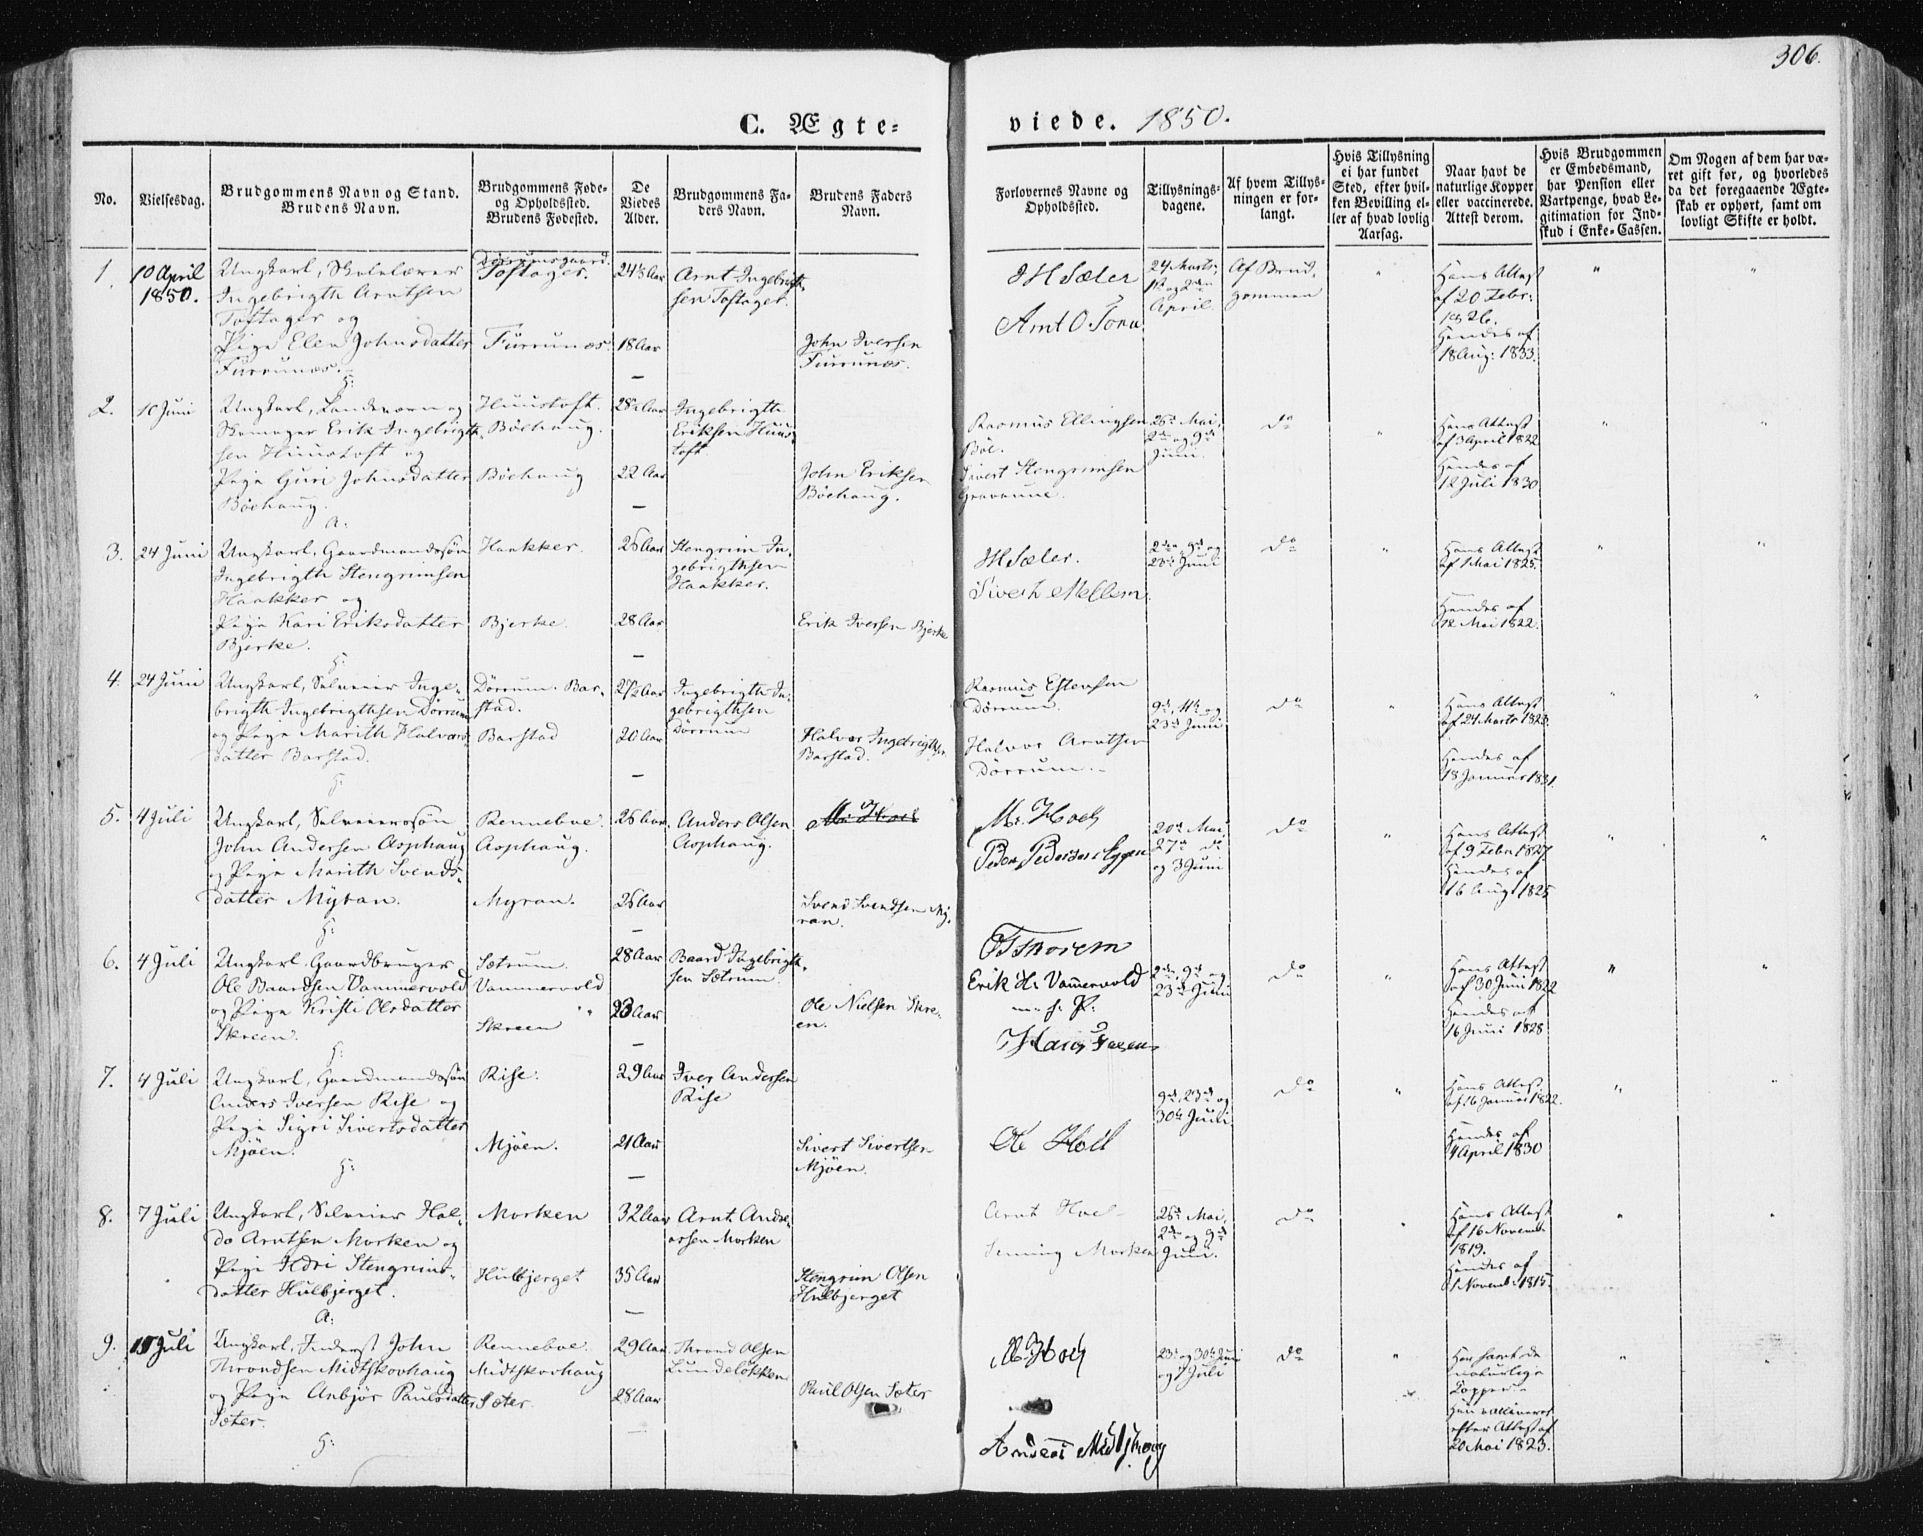 306.
C. Ægte=
viede. 1850.
No.
Vielsesdag.
Brudgommens Navn og Stand.
Brudens Navn.
Brudgommens Føde=
og Opholdssted.
Brudens Fødested.
De
Viedes
Alder.
Brudgommens Fa=
ders Navn.
Brudens Faders
Navn.
Forlovernes Navne og
Opholdssted.
Tillysnings=
dagene.
Af hvem Tillys=
ningen er for=
langt.
Hvis Tillysning
ei har fundet
Sted, efter hvil=
ken Bevilling el=
ler af hvad lovlig
Aarsag.
Naar havt de
naturlige Kopper
eller vaccinerede.
Attest derom.
Hvis Brudgommen
er Embedsmand,
har Pension eller
Vartpenge, hvad Le=
gitimation for Ind=
skud i Enke=Cassen.
Om Nogen af dem har væ=
ret gift før, og hvorledes
da det foregaaende Ægte=
skab er ophørt, samt om
lovligt Skifte er holdt.
1.
10 April
1850.
Ungkarl, Skolelærer
Ingebrigth Arntsen
Toftager og
Pige Elen Johnsdatter
Furrunæs.
Toftager.
Furrunæs
24½ Aar
18 Aar
Arnt Ingebrigt=
sen Toftager.
John Iversen
Furrunæs.
JH Sæter
24 Marts,
1ste og 2den
April
Af Brud=
gommen
Hans Attest
af 20 Febr:
1826.
Hendes af
18 Aug: 1833.
2.
10 Juni
Ungkarl, Landeværn og
Skomager Erik Ingebrigth=
sen Huustoft og
Pige Guri Johnsdatter
Böehaug.
Huustoft.
Böehaug.
Böehaug
28½ Aar
22 Aar
Ingebrigth
Eriksen Huus=
toft
John Eriksen
Böehaug.
Rasmus Ellingsen
Böe.
Sivert Stengrimsen
26de Mai,
2den og 9de
Juni.
do
Hans Attest
af 3 April 1822
Hendes af
12 Juli 1830
3.
24 Juni
Ungkarl, Gaardmandssøn
Ingebrigth Stengrimsen
Haakker og
Pige Kari Eriksdatter
Bjerke.
Haakker.
Bjerke.
26 Aar
28 Aar
Stengrim In=
gebrigthsen
Haakker.
Erik Iversen Bjerke
JH Sæter.
Siverh Mellem.
2den, 9de og
23de Juni
do
Hans Attest
af 1 Mai 1825.
Hendes af
12 Mai 1822.
4.
24 Juni
Ungkarl, Selveier Inge=
brigth Ingebrigthsen Dørrum
og Pige Marith Halvors=
datter Barstad.
Dørrum. Bar=
stad.
Barstad
27½ Aar
20 Aar
Ingebrigth In=
gebrigthsen
Dørrum
Halvor Ingebrigthsen
Barstad.
Rasmus Estensen
Dörrum.
Halvor Arntsen
Dörrum.
og
23de Juni
do
Hans Attest
af 24 Marts 1823.
Hendes af
18 Januar 1831.
5.
4 Juli
Ungkarl, Selveierssøn
John Andersen Aaphaug
og Pige Marith Svends=
datter Myran.
Renneboe.
Aaphaug.
Myran.
26 Aar
26 Aar
Anders Olsen
Aaphaug.
M. Hoel
Svend Svendsen My=
ran.
M. Hoel
Peder Pedersen Eggen
20de Mai,
27de do
og 3 Juni
do
Hans Attest
af 9 Febr 1827.
Hendes af
16 Aug: 1825
6.
4 Juli
Ungkarl Gaardbruger
Ole Baardsen Vammervold
og Pige Kristi Olsdatter
Skreen.
Sætrum.
Vammervold
Skreen
28 Aar
23 Aar
Baard Ingebrigth=
sen Sætrum.
Ole Nielsen Skre=
en.
Erik H. Vammervold
m. f. P.
2den, 9de og
23de Juni
do
Hans Attest
af 30 Juni 1822
Hendes af
16 Juni 1828.
7.
4 Juli
Ungkarl, Gaardmandssøn
Anders Iversen Rise og
Pige Sigri Sivertsdatter
Mjøen.
Rise.
Mjøen.
29 Aar
21 Aar
Iver Andersen
Rise
Sivert Sivertsen
Mjøen.
Ole Holl
9de, 23de og
30te Juni
do
Hans Attest
af 16 Januar 1822.
Hendes af
4 April 1830
8.
7 Juli
Ungkarl, Selveier Hal=
do Arntsen Morken og
Pige Ildri Stengrims=
datter Hulbjerget.
Morken
Hulbjerget
32 Aar
35 Aar
Arnt Andre=
assen Morken
Stengrim Olsen
Hulbjerget
Arnt Hoel
Morken
26de Mai,
2den og 9de
Juni.
do
Hans Attest
af 16 Novemb
1819.
Hendes af
1 Novemb. 1815.
9.
Juli
Ungkarl, Inderst John
Throndsen Midtskovhaug
og Pige Anbjör Paulsdatter
Sæter.
Renneboe
Midtskovhaug
Sæter.
29 Aar
28 Aar
Thrond Olsen
Lundeløkken
Paul Olsen Sæter
M. Hoel
23de og 30te Juni
og 7 Juli
do
Han havt de
naturlige
Kopper.
Hun vaccineret
efter Attest af
20 Mai 1823.